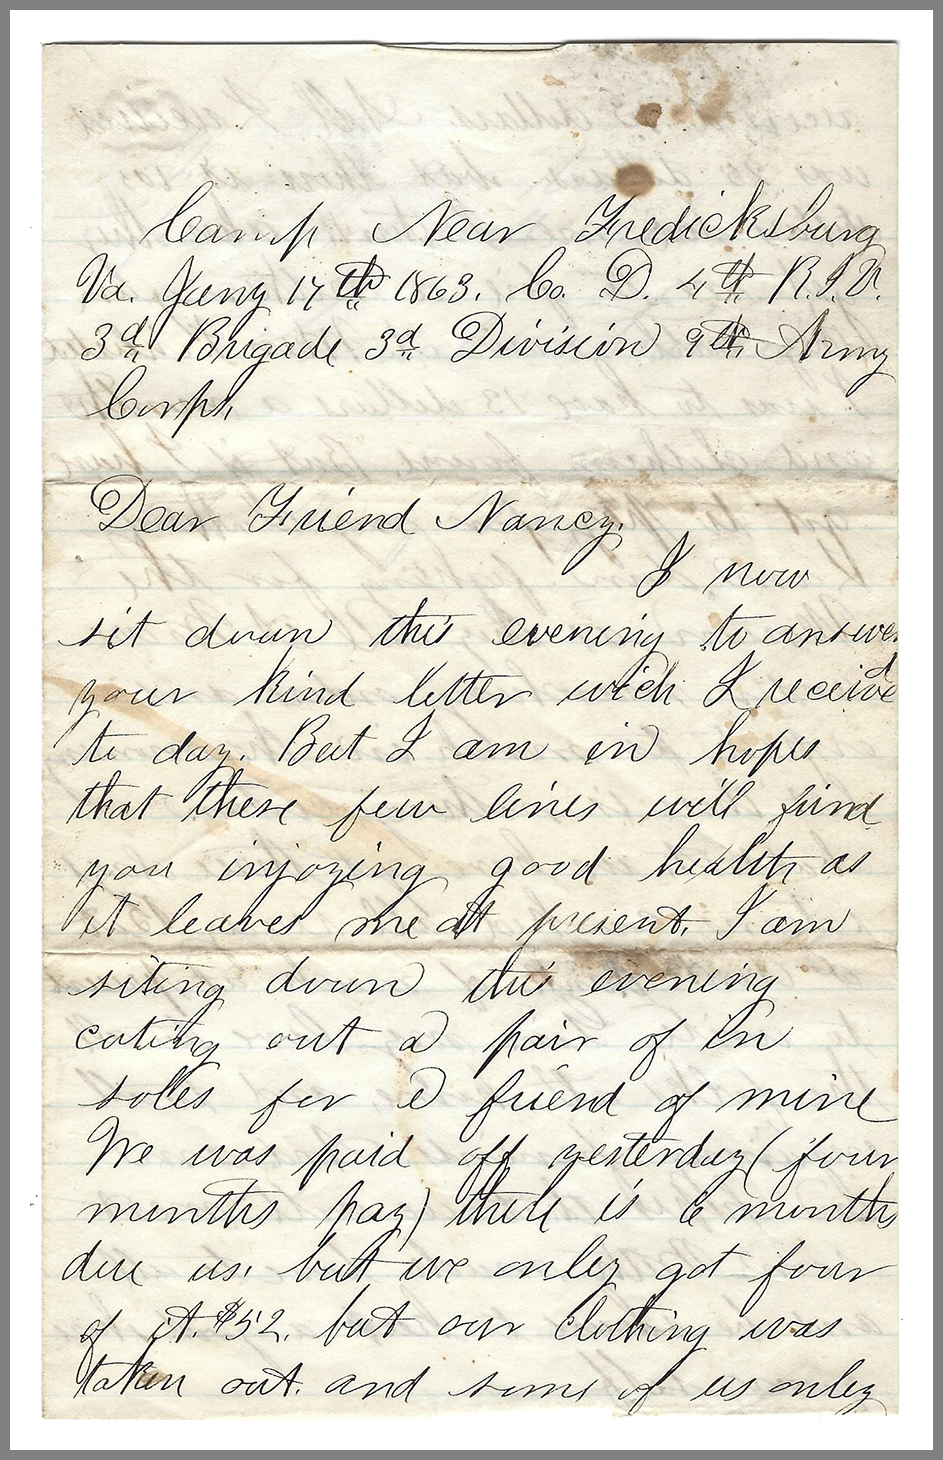 Camp Near Fredicksburg
Va. Jany 17th 1863. Co. D. 4th R.I.V.
3d Brigade 3d Division 9th Army
Corps,
Dear Friend Nancy.
I now
sit down this evening to answer
your kind letter wich I receivd
to day. But I am in hopes
that these few lines will find
you injoying good health as
it leaves me at present. I am
siting down this evening
cuting out a pair of in
soles for a friend of mine
We was paid off yesterday (four
months pay) there is 6 months
due us. but we only got four
of it. $52. but our clothing was
taken out. and some of us only